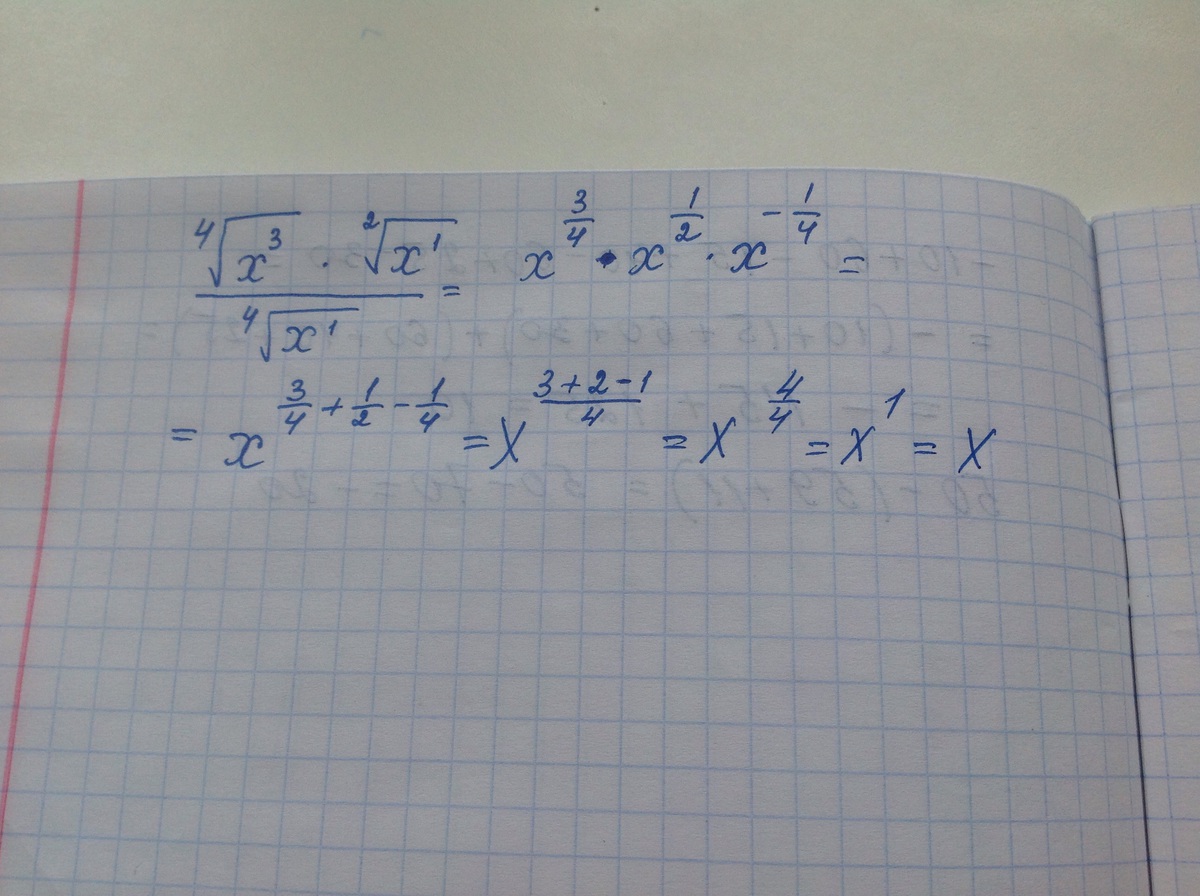 (⁴√(x³) · ²√(x¹)) / ⁴√(x¹) = x^(3/4) · x^(1/2) · x^(-1/4) =
= x^(3/4 + 1/2 - 1/4) = x^((3+2-1)/4) = x^(4/4) = x^1 = x